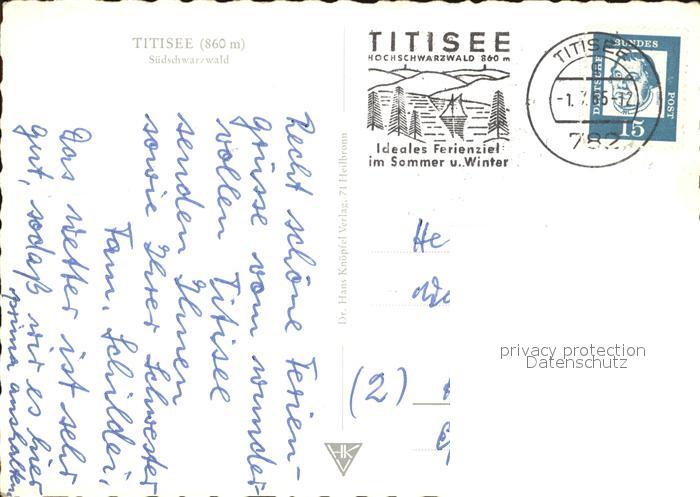 TITISEE (860 m)
Südschwarzwald
Recht schöne Ferien-
grüsse vom wunder
vollen Titisee
senden Ihnen
sowie Ihrer Schwester
Fam. Schilder,
Das Wetter ist sehr
gut, sodaß wir es hier
prima aushalten
Dr. Hans Knöpfel Verlag, 71 Heilbronn
HK
TITISEE
HOCHSCHWARZWALD 860 m
Ideales Ferienziel
im Sommer u. Winter
TITISEE
-1.7.65-12
782
DEUTSCHE BUNDESPOST
15
He
(2)
privacy protection
Datenschutz